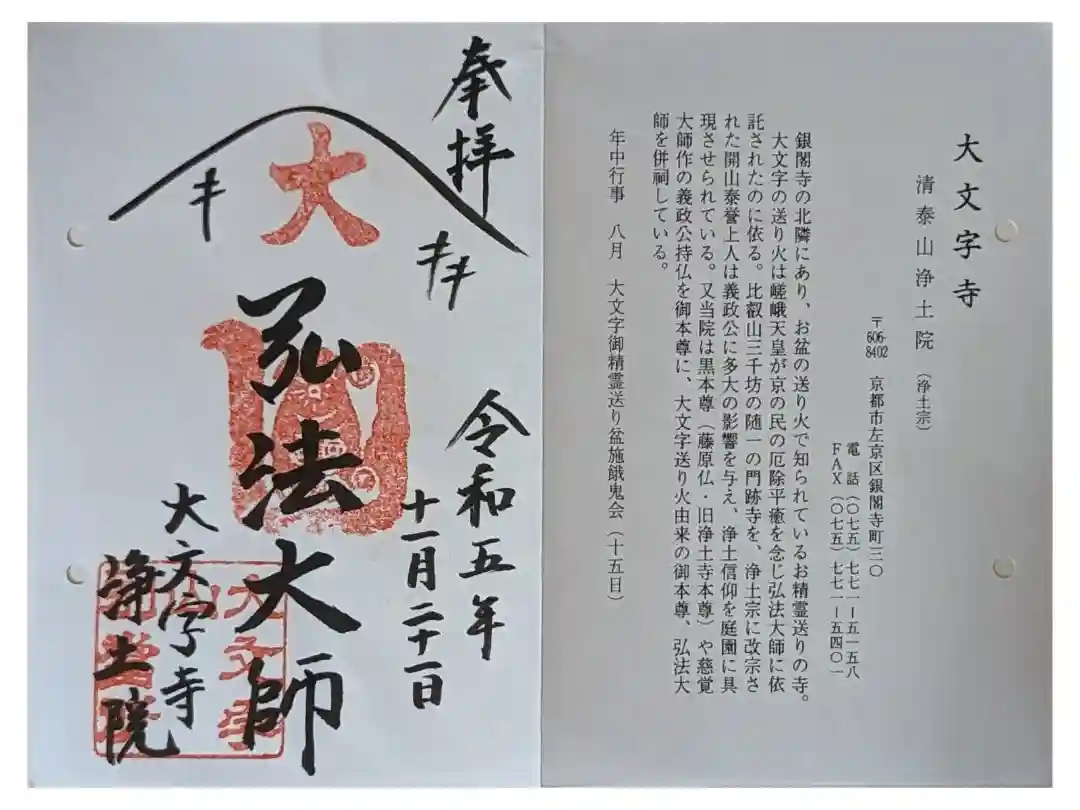 大文字寺
清泰山浄土院（浄土宗）
〒606-8402 京都市左京区銀閣寺町三〇
電 話（〇七五）七七一－五一五八
ＦＡＸ（〇七五）七七一－五四〇一
銀閣寺の北隣にあり、お盆の送り火で知られているお精霊送りの寺。
大文字の送り火は嵯峨天皇が京の民の厄除平癒を念じ弘法大師に依
託されたのに依る。比叡山三千坊の随一の門跡寺を、浄土宗に改宗さ
れた開山泰誉上人は義政公に多大の影響を与え、浄土信仰を庭園に具
現させられている。又当院は黒本尊（藤原仏・旧浄土寺本尊）や慈覚
大師作の義政公持仏を御本尊に、大文字送り火由来の御本尊、弘法大
師を併祠している。
年中行事 八月 大文字御精霊送り盆施餓鬼会（十五日）
奉拝
令和五年
十一月二十一日
大
弘法大師
大文字寺
浄土院